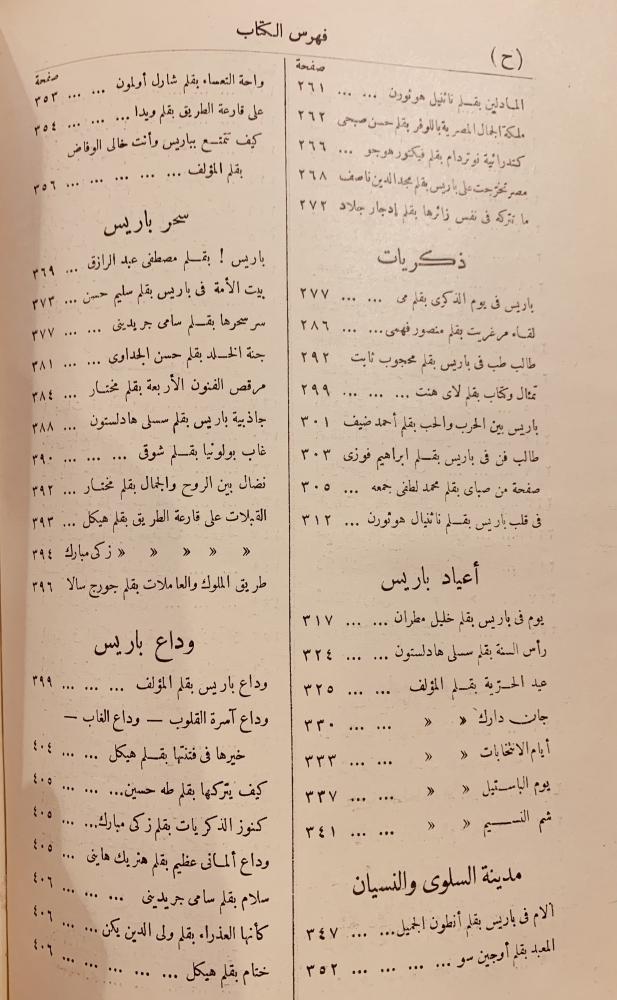 فهرس الكتاب
(ح)
صفحة
المادلين بقلم ناثنيل هوثورن ... ... ٢٦١
ملكة الجمال المصرية باللوفر بقلم حسن صبحى ٢٦٢
كتدرائية نوتردام بقلم فيكتور هوجو ... ٢٦٦
مصر تخرجت على باريس بقلم مجد الدين ناصف ٢٦٨
ما تتركه فى نفس زائرها بقلم إدجار جلاد ٢٧٢
ذكريات
باريس فى يوم الذكرى بقلم مى ... ... ٢٧٧
لقاء مرغريت بقلم منصور فهمى ... ... ٢٨٦
طالب طب فى باريس بقلم محجوب ثابت ٢٩٢
تمثال وكتاب بقلم لاى هنت ... ... ... ٢٩٩
باريس بين الحرب والحب بقلم أحمد ضيف ٣٠١
طالب فن فى باريس بقلم ابراهيم فوزى ٣٠٣
صفحة من صباى بقلم محمد لطفى جمعه ... ٣٠٥
فى قلب باريس بقلم ناثنيال هوثورن ... ٣١٢
أعياد باريس
يوم فى باريس بقلم خليل مطران ... ... ٣١٧
رأس السنة بقلم سسلى هادلستون ... ... ٣٢٤
عيد الحرية بقلم المؤلف ... ... ٣٢٥
جان دارك » » ... ... ٣٣٠
أيام الانتخابات » » ... ... ٣٣٣
يوم الباستيل » » ... ... ٣٣٧
شم النسيم » » ... ... ٣٤١
مدينة السلوى والنسيان
آلام فى باريس بقلم أنطون الجميل ... ... ٣٤٧
المعبد بقلم أوجين سو ... ... ... ... ٣٥٢
صفحة
واحة التعساء بقلم شارل أولمون ... ... ٣٥٣
على قارعة الطريق بقلم ويدا ... ... ... ٣٥٤
كيف تتمتع بباريس وأنت خالى الوفاض
بقلم المؤلف ... ... ... ... ... ٣٥٦
سحر باريس
باريس ! بقلم مصطفى عبد الرازق ... ٣٦٩
بيت الأمة فى باريس بقلم سليم حسن ... ٣٧٣
سر سحرها بقلم سامى جريدينى ... ... ٣٧٧
جنة الخلد بقلم حسن الجداوى ... ... ٣٨١
مرقص الفنون الأربعة بقلم مختار ... ... ٣٨٤
جاذبية باريس بقلم سسلى هادلستون ... ٣٨٨
غاب بولونيا بقلم شوقى ... ... ... ٣٩٠
نضال بين الروح والجمال بقلم مختار ... ٣٩٢
القبلات على قارعة الطريق بقلم هيكل ... ٣٩٣
» » » » » زكى مبارك ٣٩٤
طريق الملوك والعاملات بقلم جورج سالا ٣٩٦
وداع باريس
وداع باريس بقلم المؤلف ... ... ... ٣٩٩
وداع آسرة القلوب — وداع الغاب —
خيرها فى فتنتها بقلم هيكل ... ... ٤٠٤
كيف يتركها بقلم طه حسين ... ... ٤٠٥
كنوز الذكريات بقلم زكى مبارك ... ٤٠٥
وداع ألمانى عظيم بقلم هنريك هاينى ... ٤٠٥
سلام بقلم سامى جريدينى ... ... ... ٤٠٦
كأنها العذراء بقلم ولى الدين يكن ... ... ٤٠٦
ختام بقلم هيكل ... ... ... ... ... ٤٠٦